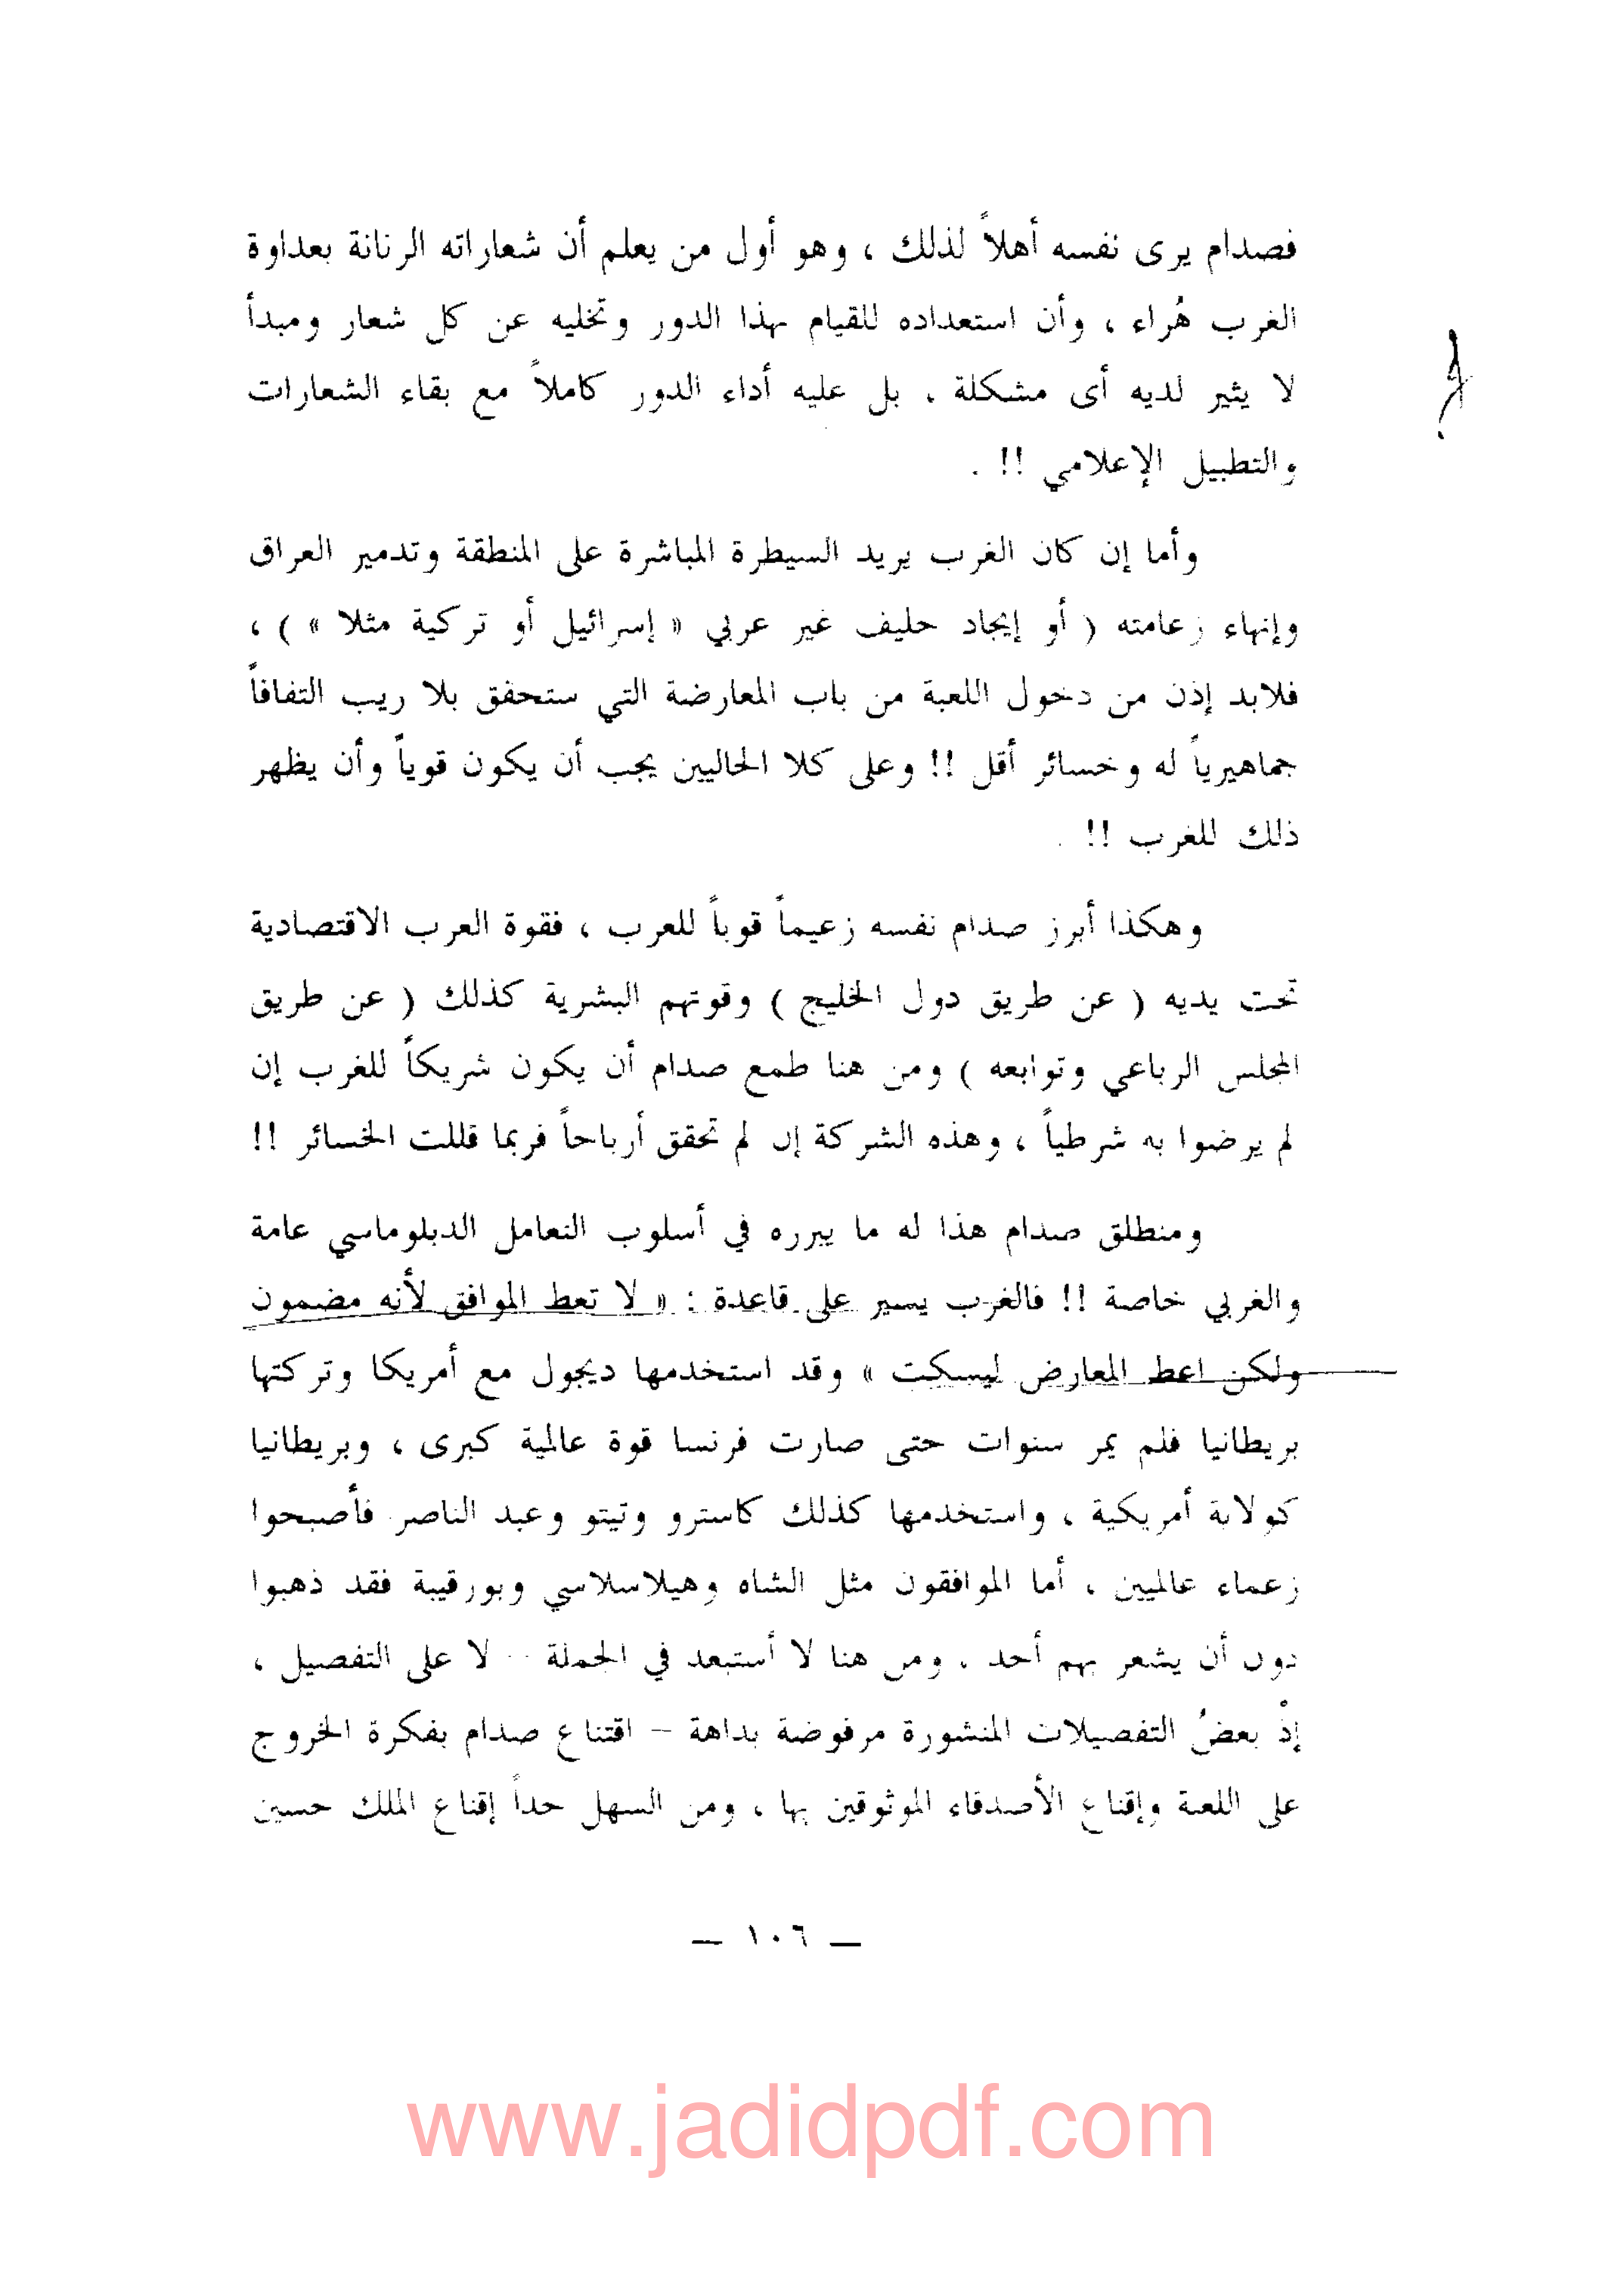 فصدام يرى نفسه أهلاً لذلك ، وهو أول من يعلم أن شعاراته الرنانة بعداوة
الغرب هُراء ، وأن استعداده للقيام بهذا الدور وتخليه عن كل شعار ومبدأ
لا يثير لديه أى مشكلة . بل عليه أداء الدور كاملاً مع بقاء الشعارات
والتطبيل الإعلامي !! .
وأما إن كان الغرب يريد السيطرة المباشرة على المنطقة وتدمير العراق
وإنهاء زعامته ( أو إيجاد حليف غير عربي « إسرائيل أو تركية مثلا » ) ،
فلابد إذن من دخول اللعبة من باب المعارضة التي ستحقق بلا ريب التفافاً
جماهيرياً له وخسائر أقل !! وعلى كلا الحاليين يجب أن يكون قوياً وأن يظهر
ذلك للغرب !! .
وهكذا أبرز صدام نفسه زعيماً قوياً للعرب ، فقوة العرب الاقتصادية
تحت يديه ( عن طريق دول الخليج ) وقوتهم البشرية كذلك ( عن طريق
المجلس الرباعي وتوابعه ) ومن هنا طمع صدام أن يكون شريكاً للغرب إن
لم يرضوا به شرطياً ، وهذه الشركة إن لم تحقق أرباحاً فربما قللت الخسائر !!
ومنطلق صدام هذا له ما يبرره في أسلوب التعامل الدبلوماسي عامة
والغربي خاصة !! فالغرب يسير على قاعدة : « لا تعط الموافق لأنه مضمون
ولكن اعط المعارض ليسكت » وقد استخدمها ديجول مع أمريكا وتركتها
بريطانيا فلم يمر سنوات حتى صارت فرنسا قوة عالمية كبرى ، وبريطانيا
كولاية أمريكية ، واستخدمها كذلك كاسترو وتيتو وعبد الناصر فأصبحوا
زعماء عالميين ، أما الموافقون مثل الشاه وهيلاسلاسي وبورقيبة فقد ذهبوا
دون أن يشعر بهم أحد . ومن هنا لا أستبعد في الجملة – لا على التفصيل ،
إذْ بعضُ التفصيلات المنشورة مرفوضة بداهة – اقتناع صدام بفكرة الخروج
على اللعبة وإقناع الأصدقاء الموثوقين بها ، ومن السهل جداً إقناع الملك حسين
— ١٠٦ —
www.jadidpdf.com